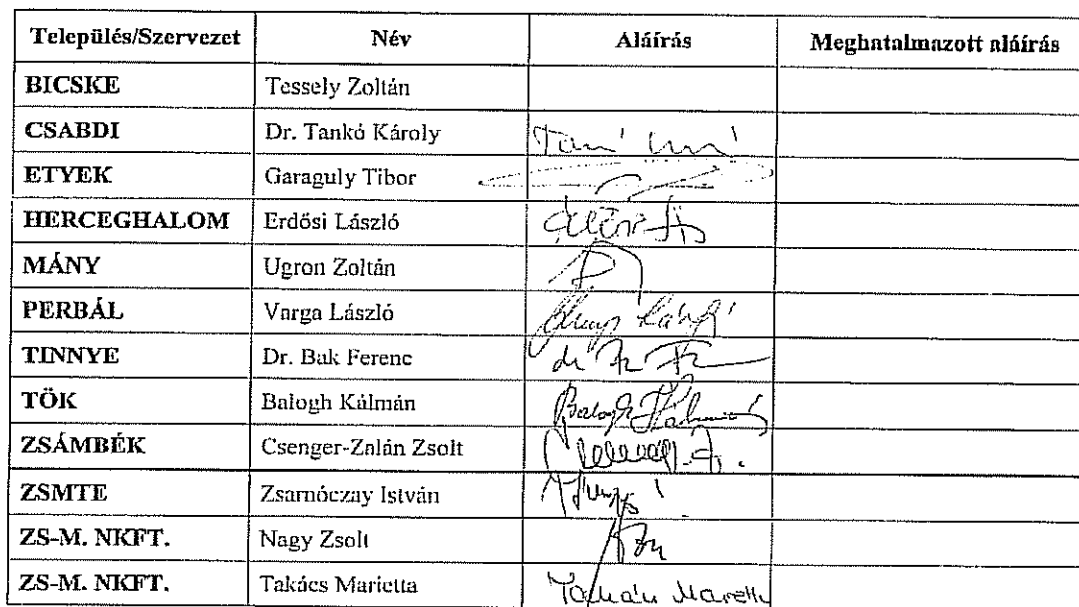 Település/Szervezet Név Aláírás Meghatalmazott aláírás
BICSKE Tessely Zoltán
CSABDI Dr. Tankó Károly
ETYEK Garaguly Tibor
HERCEGHALOM Erdősi László
MÁNY Ugron Zoltán
PERBÁL Varga László
TINNYE Dr. Bak Ferenc
TÖK Balogh Kálmán Balogh Kálmán
ZSÁMBÉK Csenger-Zalán Zsolt
ZSMTE Zsarnóczay István
ZS-M. NKFT. Nagy Zsolt
ZS-M. NKFT. Takács Marietta